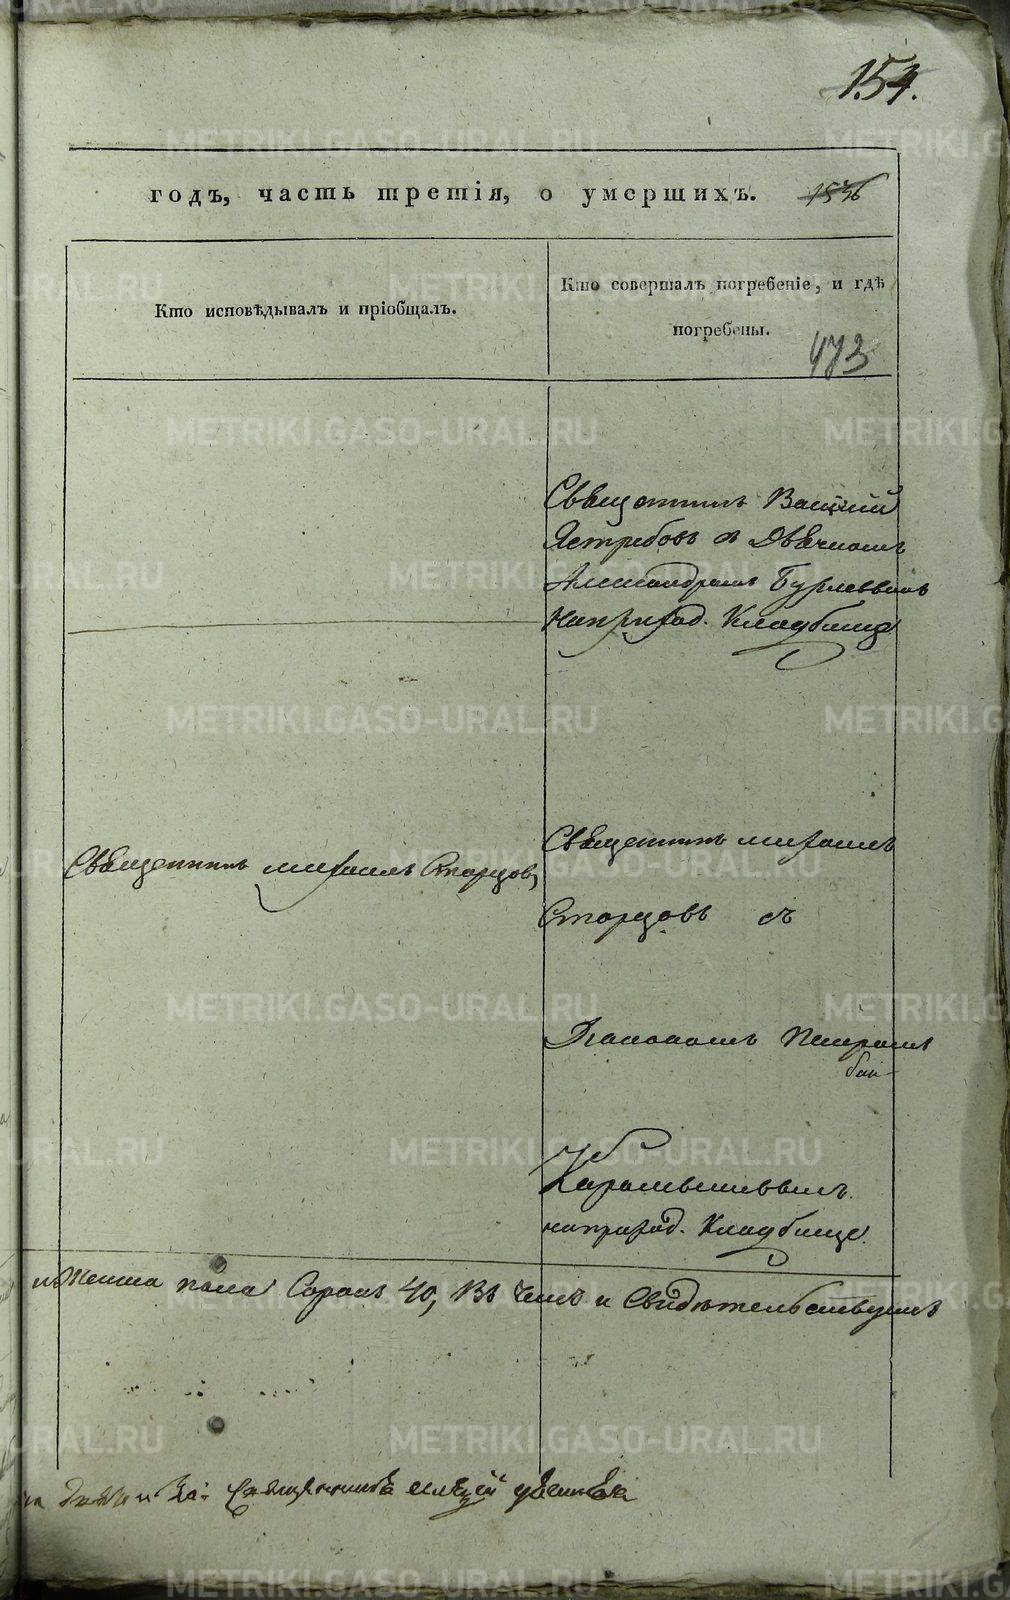 154.
годъ, часть третія, о умершихъ. 1536
Кто исповѣдывалъ и пріобщалъ.
Кто совершалъ погребеніе, и гдѣ
погребены.
473
Священникъ Василій
Ястребовъ съ Дьячкомъ
Александромъ
на приход. Кладбище
Священникъ Михаилъ Старцовъ
Священникъ Михаилъ
Старцовъ съ
Дьякономъ Петромъ
на приход. Кладбище.
и Женска пола Сорокъ 40, Въ чемъ и Свидѣтельствуемъ
METRIKI.GASO-URAL.RU